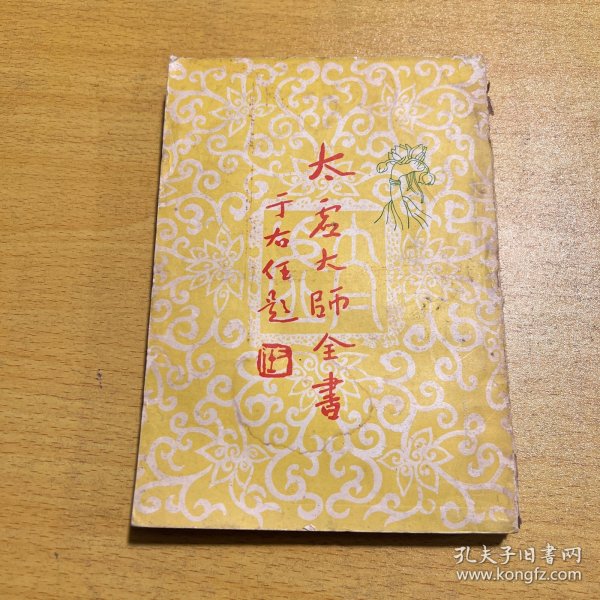 太虛大師全書
于右任題
孔夫子旧書网
www.kongfz.com